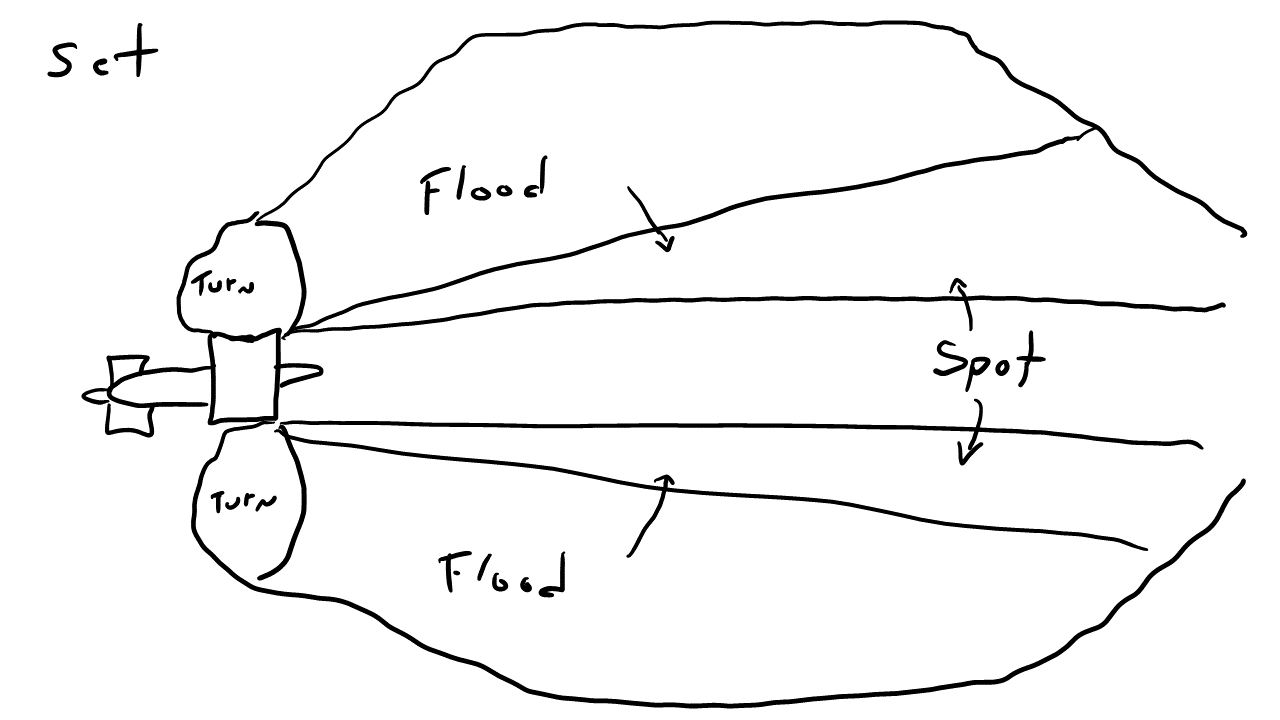 Set
Flood
Turn
Spot
Turn
Flood